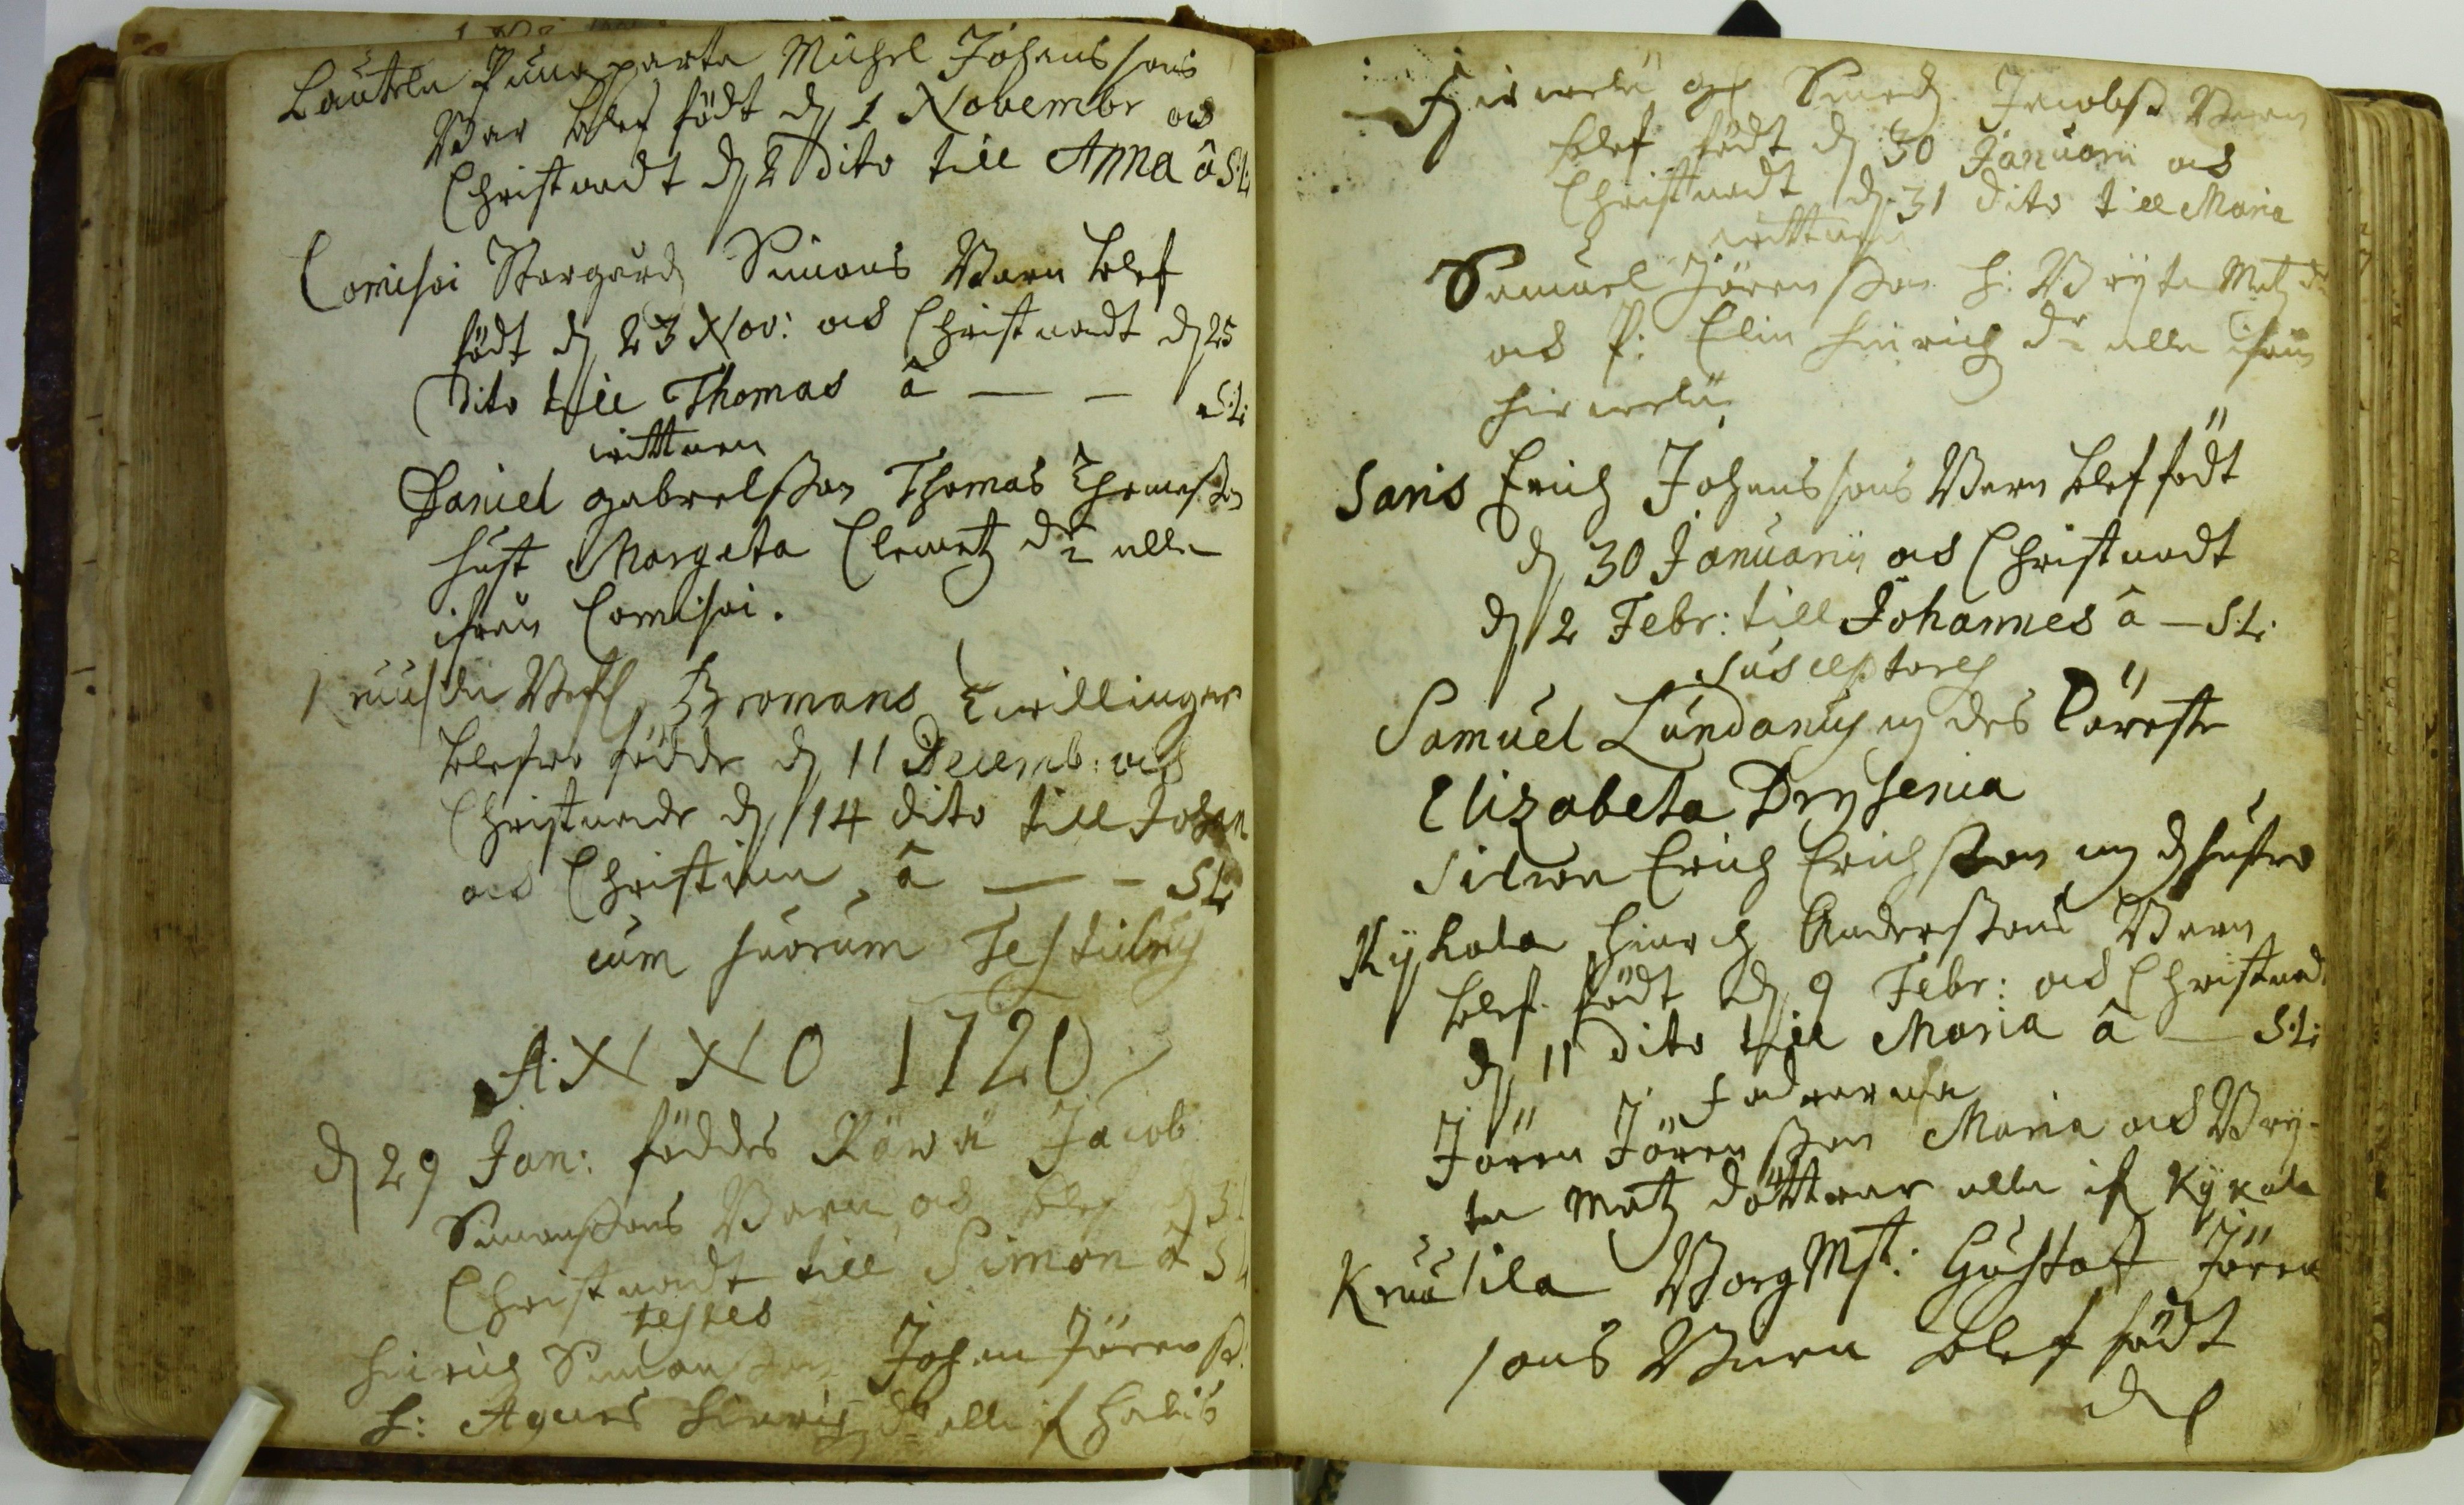 Lautela Punaparta Michel Johanssons
Barn blef födt d. 1 Novembr och
Christnadt d. 2 dito till Anna â S:L:
Comisoi Storgård Simons Barn blef
födt d. 23 Nov: och Christnadt d. 25
dito till Thomas â — — S:L:
wittnen
Daniel gabrielsson Thomas Thomesson
hust Margeta Clemetz dr alla
ifrån Comisoi.
Knusila Bromans Twillingar
blefwo födde d. 11 Decemb: och
Christnade d. 14 dito till Johan
och Christina, â — — S:L:
cum suorum Testibus
ANNO 1720
d. 29 Jan: föddes Röwä Jacob
Simonssons Barn och blef d. 31
Christnadt till Simon â S:L:
testes
Hinrich Simonsson Johan Jörenss.
h: Agnes Hinrichz dr alla if
Hirwelä Jacobss Barn
blef födt d. 30 Januarii och
Christnadt d. 31 dito till Maria
wittnen
Samuel Jörensson h: Bryta Matz dr
och P: Elin Hinrichz dr alla ifrån
Hirwelä
Saris Erich Johanssons Barn blef födt
d. 30 Januarij och Christnadt
d. 2 Febr: till Johannes â — S:L:
Susceptores
Samuel Lundanus m des Käreste
Elizabeta Drysenia
Erich Erichsson m d. hustro
Kykala Hinrich Anderssons Barn
blef födt d. 9 Febr: och Christnad
d. 11 dito till Maria â — S:L:
Faddrarna
Jören Jörensson Maria och Bry-
ta Matz döttrar alla if Kykala
Knusila BorgMst: Gustaf Jören
sons Barn blef födt
den